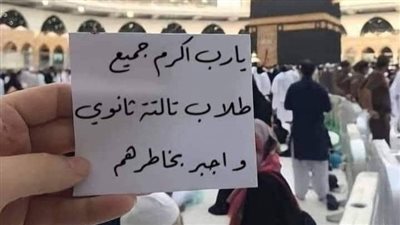 يارب اكرم جميع
طلاب تالتة ثانوي
و اجبر بخاطرهم